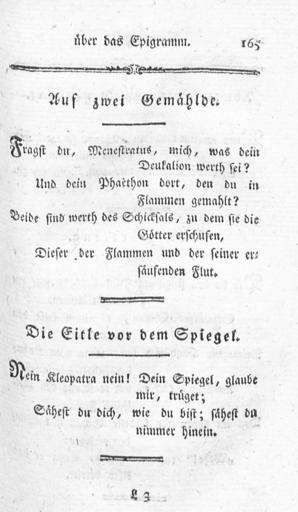 über das Epigramm. 165
Auf zwei Gemählde.
Fragst du, Menestratus, mich, was dein
Deukalion werth sei?
Und dein Phaëthon dort, den du in
Flammen gemahlt?
Beide sind werth des Schicksals, zu dem sie die
Götter erschufen,
Dieser der Flammen und der seiner er-
säufenden Flut.
Die Eitle vor dem Spiegel.
Nein Kleopatra nein! Dein Spiegel, glaube
mir, trüget;
Sähest du dich, wie du bist; sähest du
nimmer hinein.
L 3